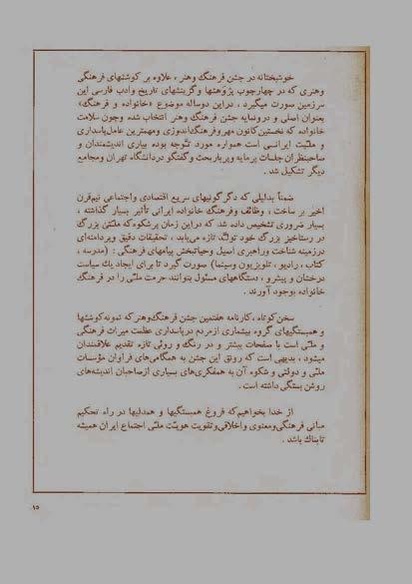 خوشبختانه در جشن فرهنگ وهنر ، علاوه بر کوششهای فرهنگی
وهنری که در چهارچوب پژوهشها وگزینشهای تاریخ وادب فارسی این
سرزمین صورت میگیرد ، دراین دوساله موضوع «خانواده و فرهنگ»
بعنوان اصلی و درونمایه جشن فرهنگ وهنر انتخاب شده وچون سلامت
خانواده که نخستین کانون مهر وفرهنگ‌اندوزی ومهمترین عامل‌پاسداری
و ملیت ایرانسی است همواره مورد توجه بوده بیاری اندیشمندان و
صاحبنظران جلسات پرمایه وپربار بحث وگفتگو دردانشگاه تهران ومجامع
دیگر تشکیل شد .
ضمناً بدلیلی که دگرگونیهای سریع اقتصادی واجتماعی نیم‌قرن
اخیر بر ساخت ، وظائف وفرهنگ خانواده ایرانی تأثیر بسیار گذاشته ،
بسیار ضروری تشخیص داده شد که دراین زمان پرشکوه‌که ملتی بزرگ
در رستاخیز بزرگ خود تولد تازه می‌یابد ، تحقیقات دقیق وپردامنه‌ای
درزمینه شناخت وراهبری اصیل وحیاتبخش پیامهای فرهنگی : (مدرسه ،
کتاب ، رادیو ، تلویزیون وسینما) صورت گیرد تا برای ایجاد یک سیاست
درخشان و پیشرو ، دستگاههای مسئول بتوانند حرمت ملی را در فرهنگ
خانواده بوجود آورند .
سخن‌کوتاه ، کارنامه هفتمین جشن فرهنگ‌وهنر که نمونه‌کوششها
و همبستگیهای گروه بیشماری ازمردم درپاسداری عظمت میراث فرهنگی
و ملی است با صفحات بیشتر و در رنگ و روئی تازه تقدیم علاقمندان
میشود ، بدیهی است که رونق این جشن به همگامی‌های فراوان مؤسسات
ملی و دولتی و شکوه آن به همفکری‌های بسیاری ازصاحبان اندیشه‌های
روشن بستگی داشته است .
از خدا بخواهیم‌که فروغ همبستگیها و همدلیها در راه تحکیم
مبانی فرهنگی‌ومعنوی واخلاقی‌وتقویت هویت ملی اجتماع ایران همیشه
تابناک باشد .
۱۵